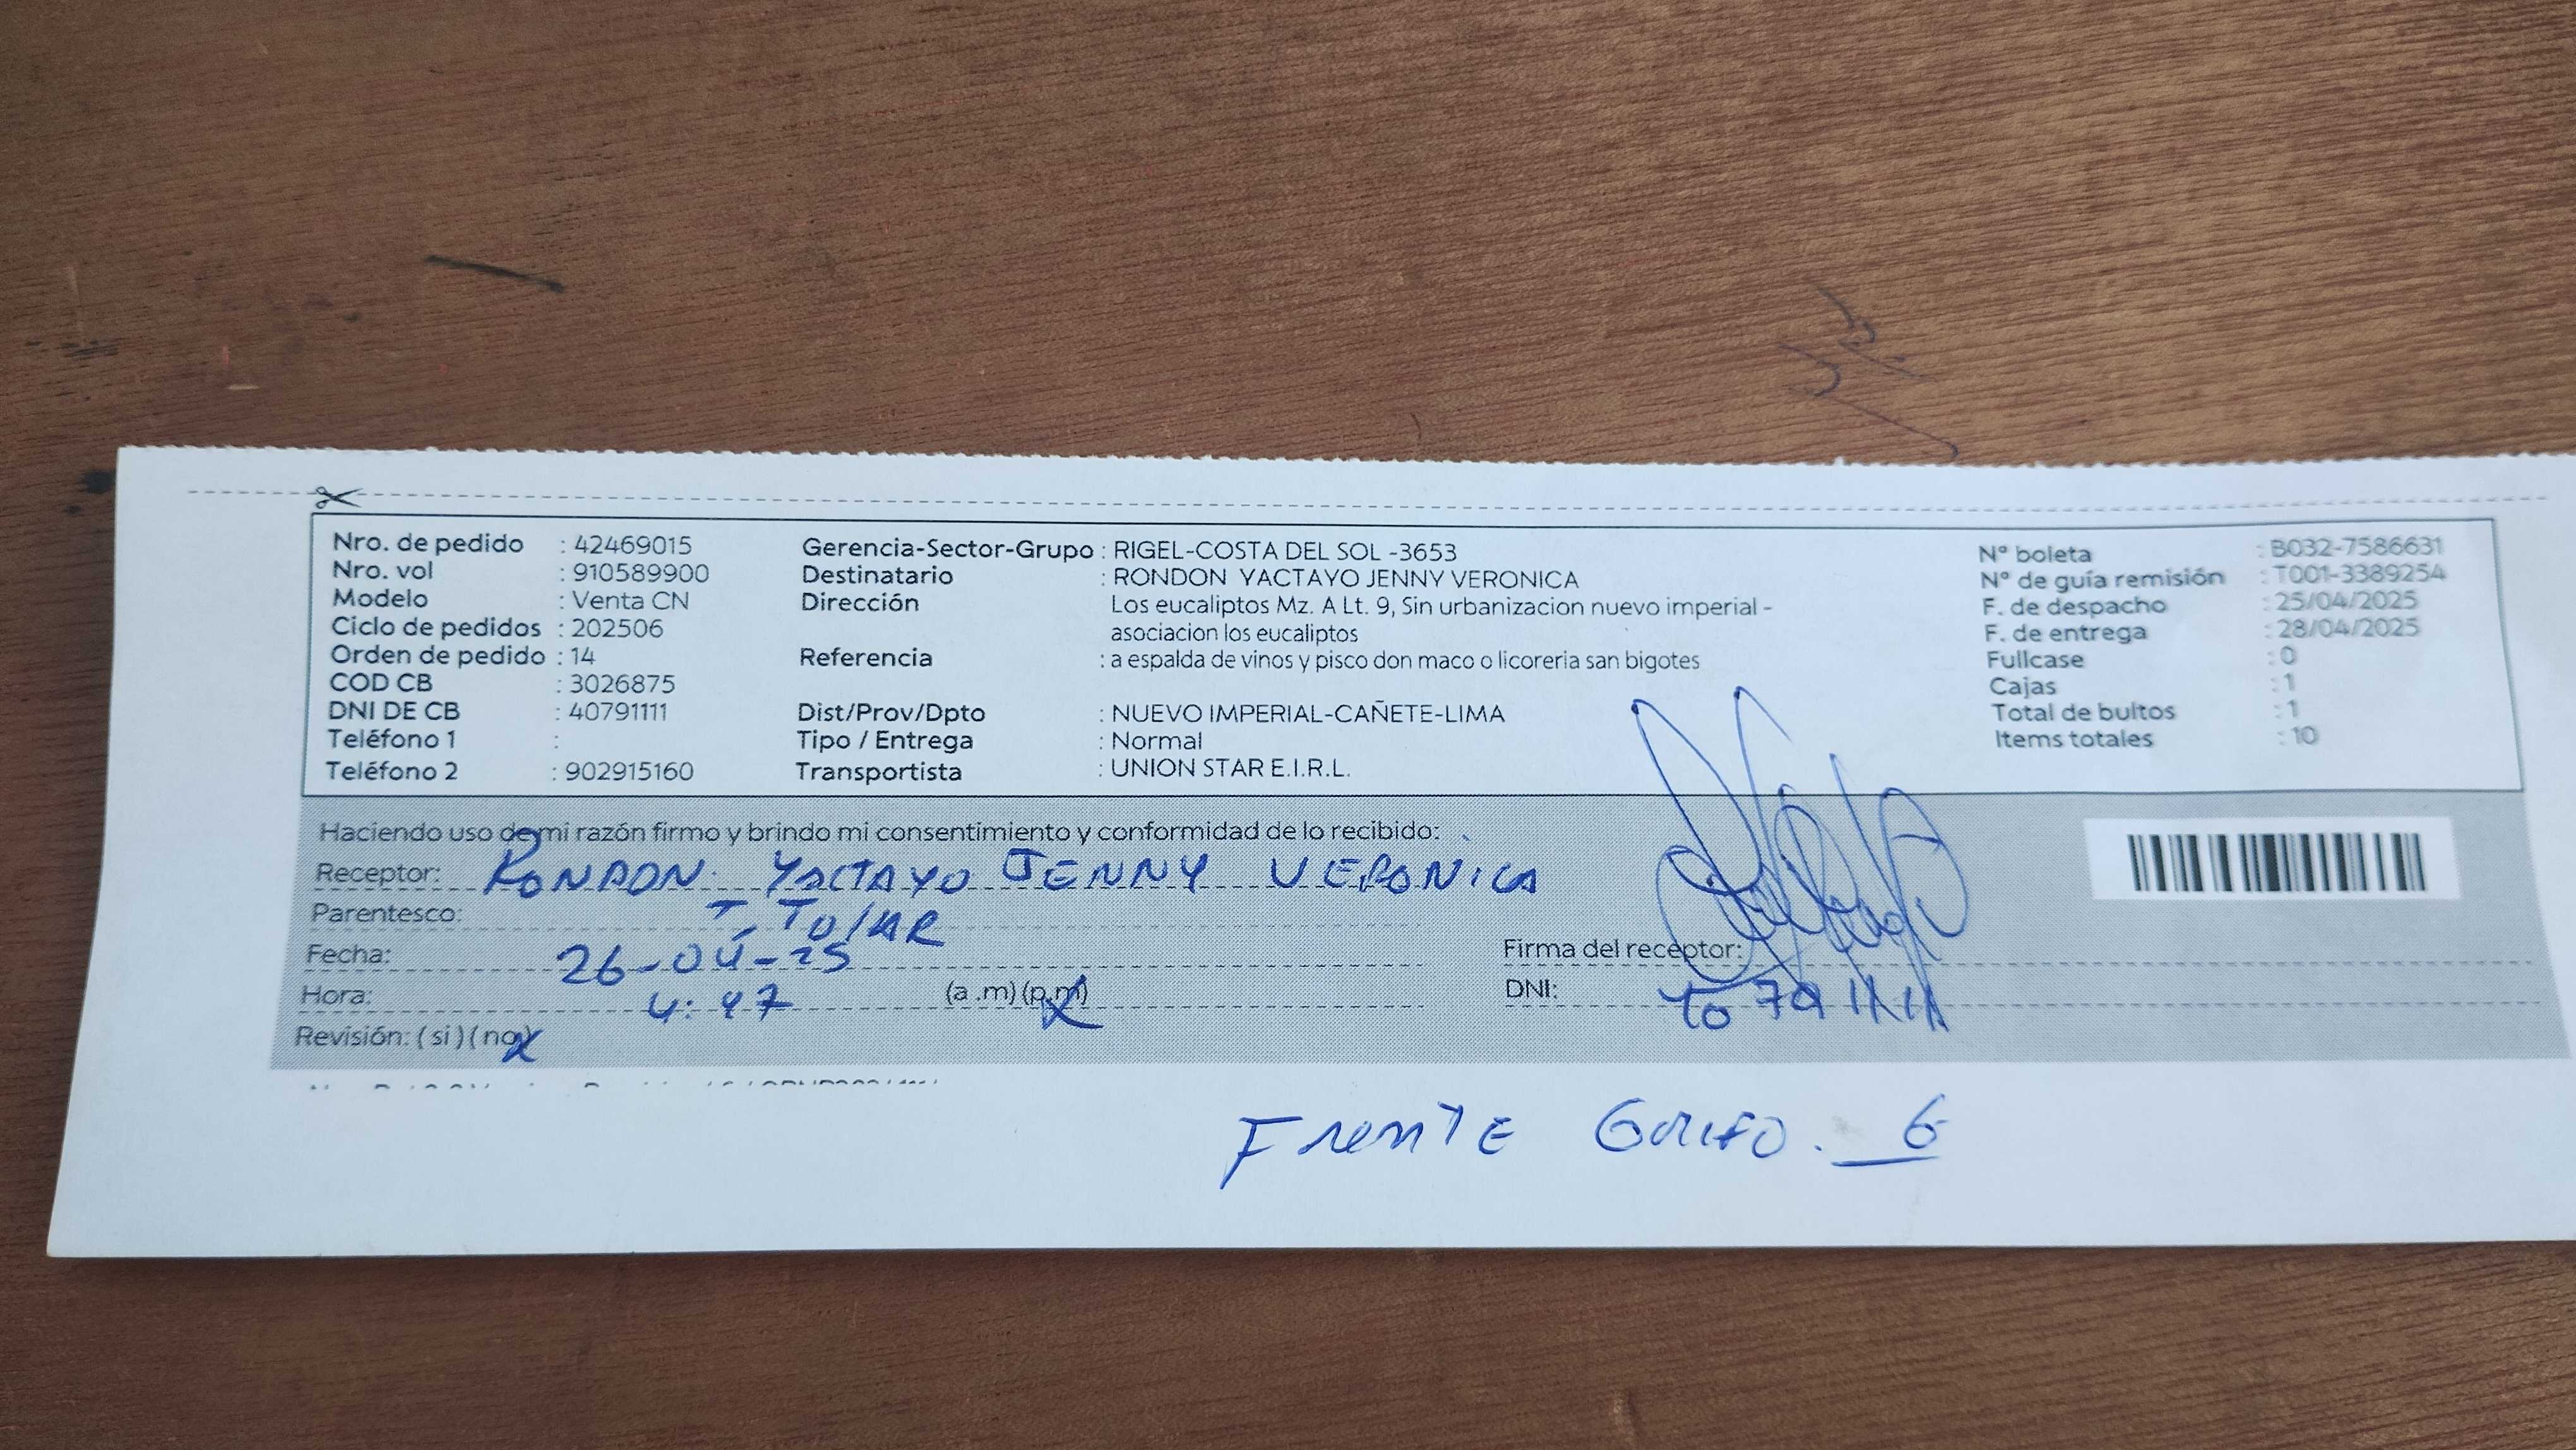 Nro. de pedido : 42469015
Nro. vol : 910589900
Modelo : Venta CN
Ciclo de pedidos : 202506
Orden de pedido : 14
COD CB : 3026875
DNI DE CB : 40791111
Teléfono 1 :
Teléfono 2 : 902915160
Gerencia-Sector-Grupo : RIGEL-COSTA DEL SOL -3653
Destinatario : RONDON YACTAYO JENNY VERONICA
Dirección Los eucaliptos Mz. A Lt. 9, Sin urbanizacion nuevo imperial -
asociacion los eucaliptos
Referencia : a espalda de vinos y pisco don maco o licoreria san bigotes
Dist/Prov/Dpto : NUEVO IMPERIAL-CAÑETE-LIMA
Tipo / Entrega : Normal
Transportista : UNION STAR E.I.R.L.
Nº boleta : B032-7586631
Nº de guía remisión : T001-3389254
F. de despacho : 25/04/2025
F. de entrega : 28/04/2025
Fullcase : 0
Cajas : 1
Total de bultos : 1
Items totales : 10
Haciendo uso de mi razón firmo y brindo mi consentimiento y conformidad de lo recibido:
Receptor: RONDON YACTAYO JENNY VERONICA
Parentesco: TITULAR
Fecha: 26-04-25
Hora: 4:47 (a.m) (p.m)
Revisión: (si) (no)
Firma del receptor:
DNI: 40791111
FRENTE GRIFO. 6